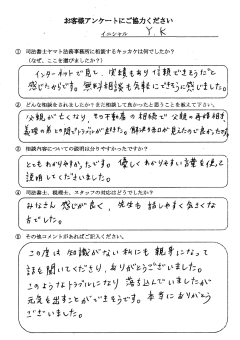 お客様アンケートにご協力ください
イニシャル Y.K
① 司法書士ヤマト法務事務所に相談するキッカケは何でしたか?
(なぜ、ここを選びましたか?)
インターネットで見て、実績もあり信頼できそうだと
感じたからです。無料相談も気軽にできそうに感じました。
② どんな相談をされましたか?また相談して良かったと思うことを教えて下さい。
父親が亡くなり、その不動産の相続で父親の再婚相手、
義理の弟との間でトラブルが起きた。解決方法が見えたので良かったです。
③ 相談内容についての説明は分りやすかったですか?
とてもわかりやすかったです。優しくわかりやすい言葉を使って
説明してくださいました。
④ 司法書士、税理士、スタッフの対応はどうでしたか?
みなさん感じが良く、先生も話しやすく気さくな
方でした。
⑤ その他コメントがあればご記入ください。
この度は知識がない私にも親身になって
話を聞いてくださり、ありがとうございました。
このようなトラブルになり落ち込んでいましたが
元気を出すことができそうです。本当にありがとう
ございました。